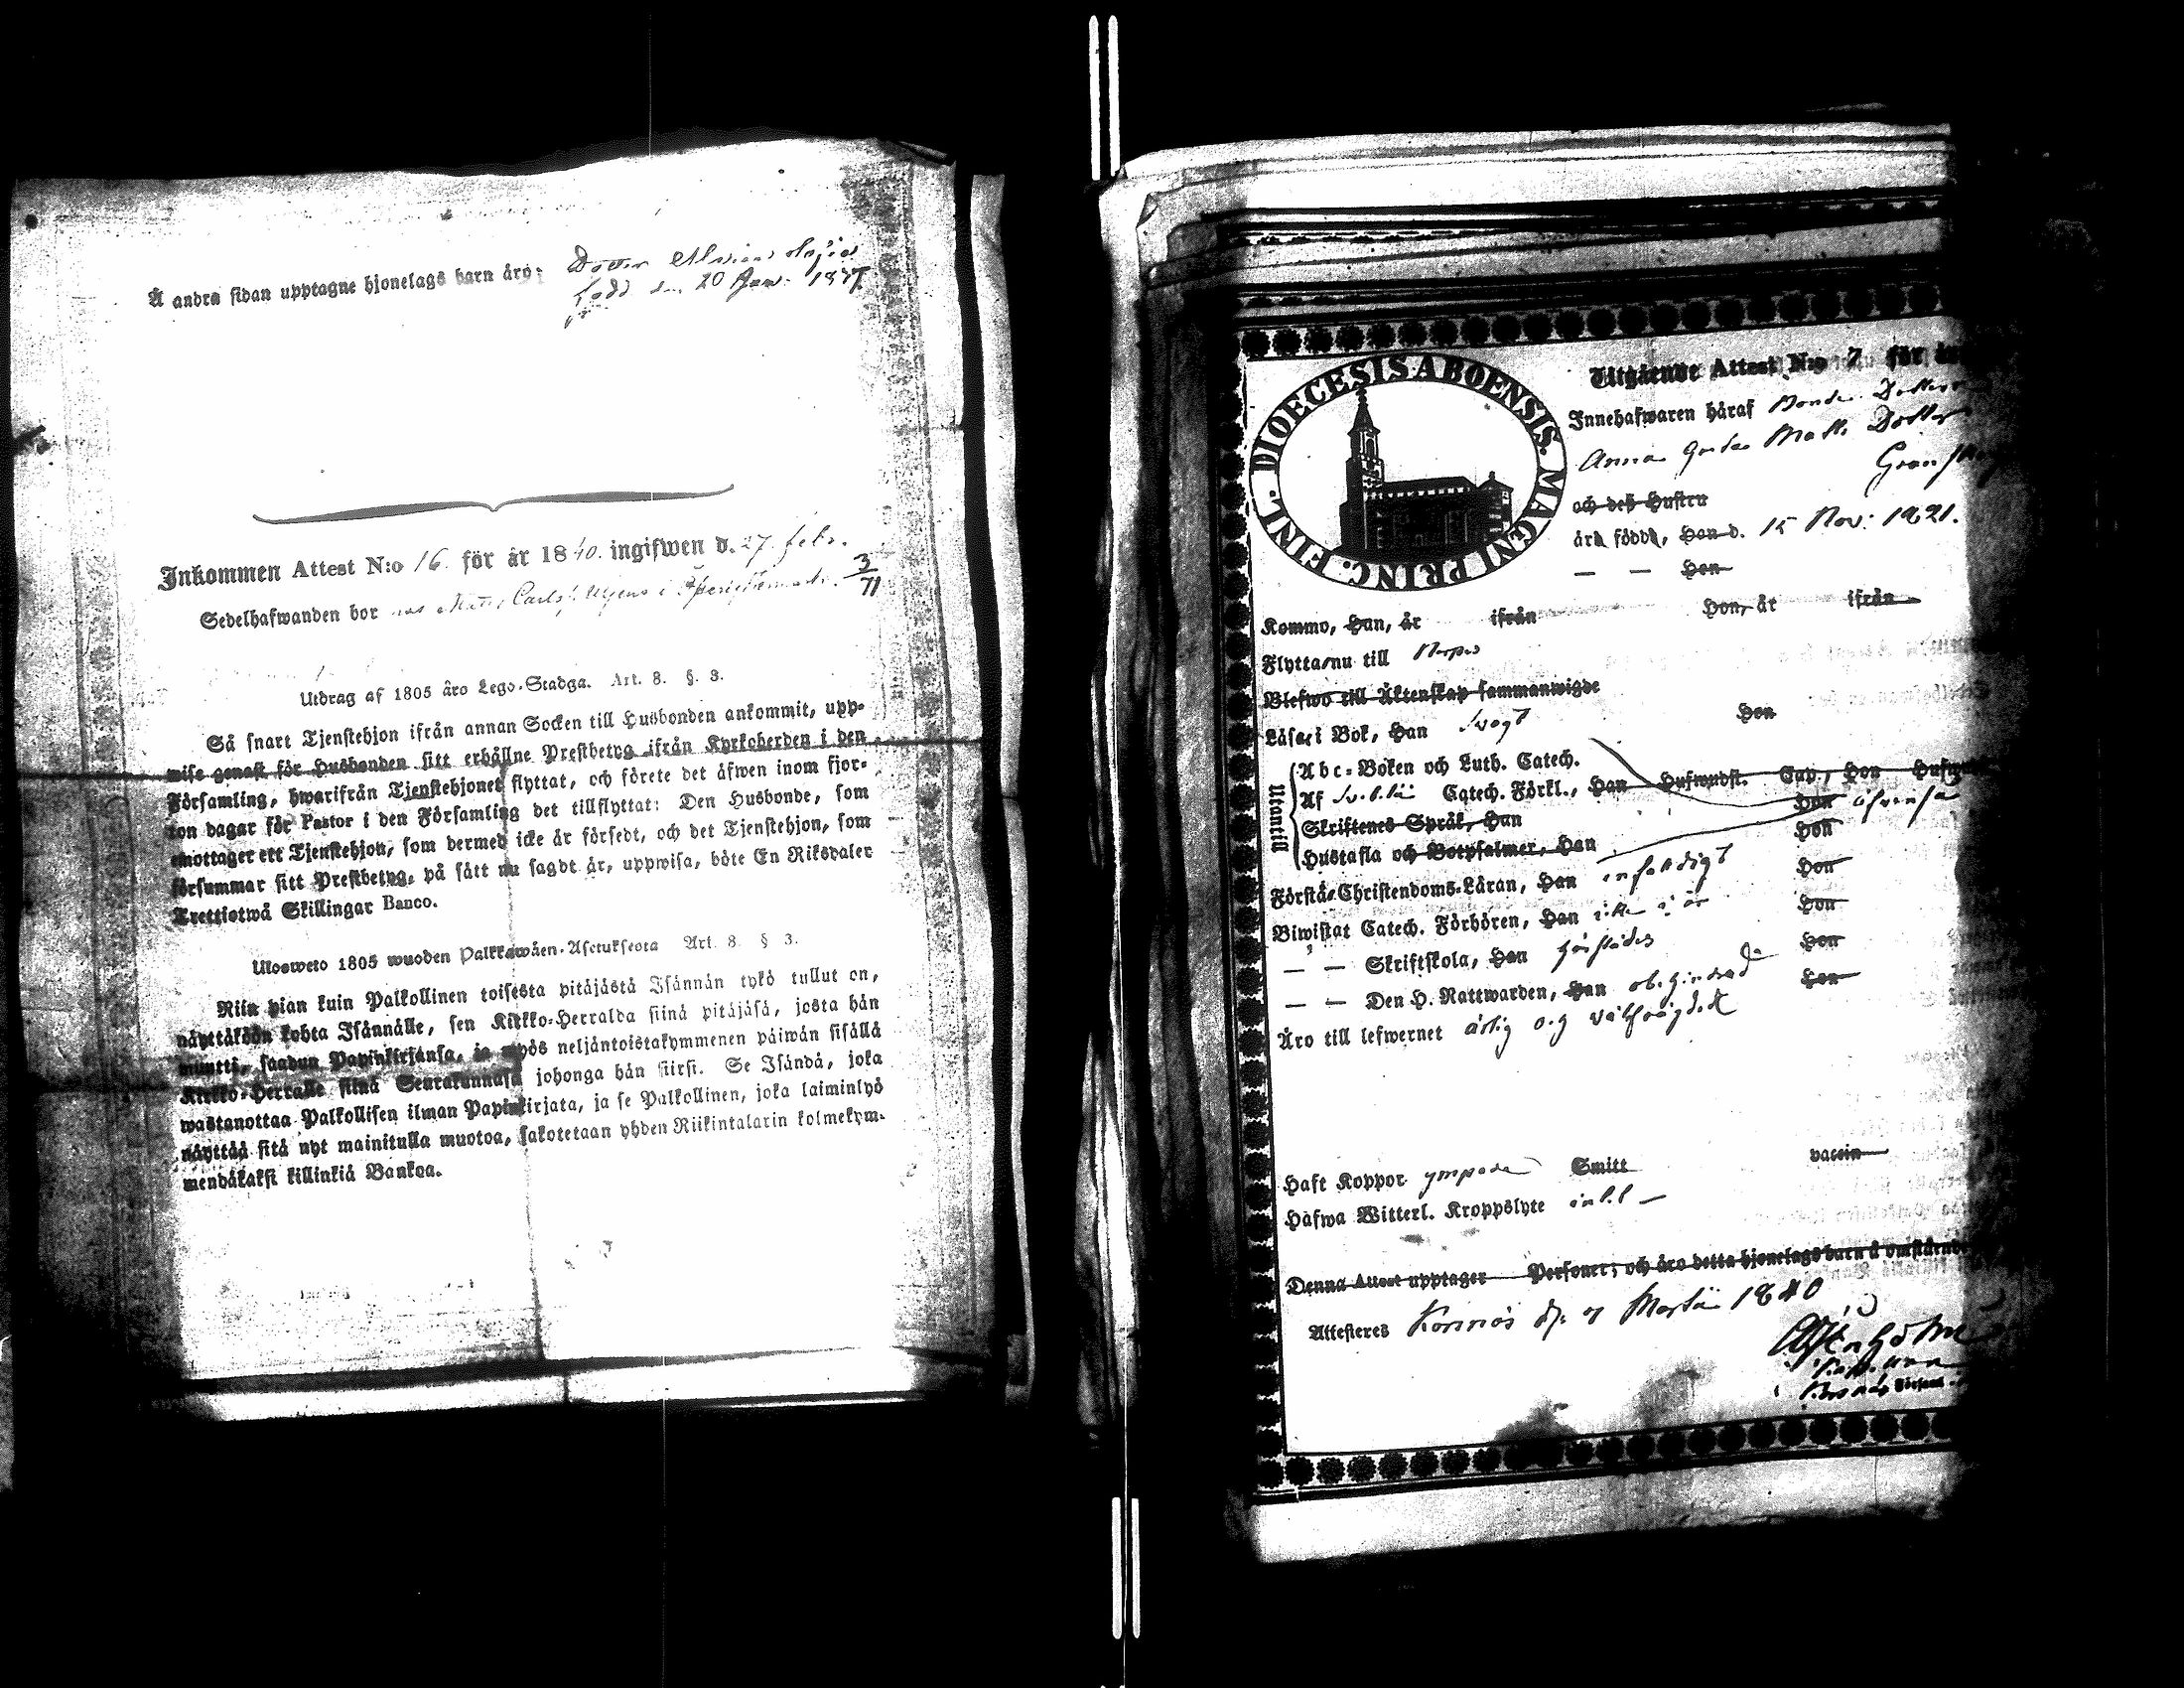 Å andra sidan upptagne hjonelags barn äro:
född den 20 Jan. 1837
Inkommen Attest N:o 16. för år 1840. ingifwen d. 27 febr.
Sedelhafwanden bor hos Matts Carls
3
71
Utdrag af 1805 års Lego-Stadga. Art. 8. §. 3.
Så snart Tjenstehjon ifrån annan Socken till Husbonden ankommit, upp-
wise genast för Husbonden sitt erhållne Prestbetyg ifrån Kyrkoherden i den
Församling, hwarifrån Tjenstehjonet flyttat, och förete det äfwen inom fjor-
ton dagar för Pastor i den Församling det tillflyttat: Den Husbonde, som
emottager ett Tjenstehjon, som dermed icke är försedt, och det Tjenstehjon, som
försummar sitt Prestbetyg, på sätt nu sagdt är, uppwisa, böte En Riksdaler
Trettiotwå Skillingar Banco.
Ulosweto 1805 wuoden Palkkawäen-Asetuksesta Art. 8. §. 3.
Niin pian kuin Palkollinen toisesta pitäjästä Isännän tykö tullut on,
näyttäköön kohta Isännälle, sen Kirkko-Herralda siinä pitäjäsä, josta hän
muutti, saadun Papinkirjansa, ja myös neljäntoistakymmenen päiwän sisällä
Kirkko-Herralle siinä Seurakunnasa johonga hän siirsi. Se Isändä, joka
wastanottaa Palkollisen ilman Papinkirjata, ja se Palkollinen, joka laiminlyö
näyttää sitä nyt mainitulla muotoa, sakotetaan yhden Riikintalarin kolmekym-
mendäkaksi killinkiä Bankoa.
DIOECESIS ABOENSIS. MAGNI PRINC. FINL.
Utgående Attest N:o 7 för år
Innehafwaren häraf Bonde Dottern
Anna Greta Matts Dotter
och deß Hustru
äro födde, Han d. 15 Nov: 1821.
— — Hon
Kommo, Han, år ifrån Hon, år ifrån
Flytta nu till Nerpes
Blefwo till Äktenskap sammanwigde
Läsa i Bok, Han svagt Hon
Utantill
Abc-Boken och Luth. Catech.
Af Catech. Förkl., Han Hufwudst. Cap., Hon
Skriftenes Språk, Han Hon
Hustafla och Botpsalmer, Han Hon
Förstå Christendoms-Läran, Han enfaldigt Hon
Biwistat Catech. Förhören, Han icke i år Hon
— — Skriftskola, Han Hon
— — Den H. Nattwarden, Han obehindrad Hon
Äro till lefwernet ärlig och välfrägdad
Haft Koppor ympade Smitt vaccin
Hafwa Witterl. Kroppslyte
Denna Attest upptager Personer; och äro detta hjonelags barn å omstående
Attesteres Korsnäs d. 7 Martii 1840